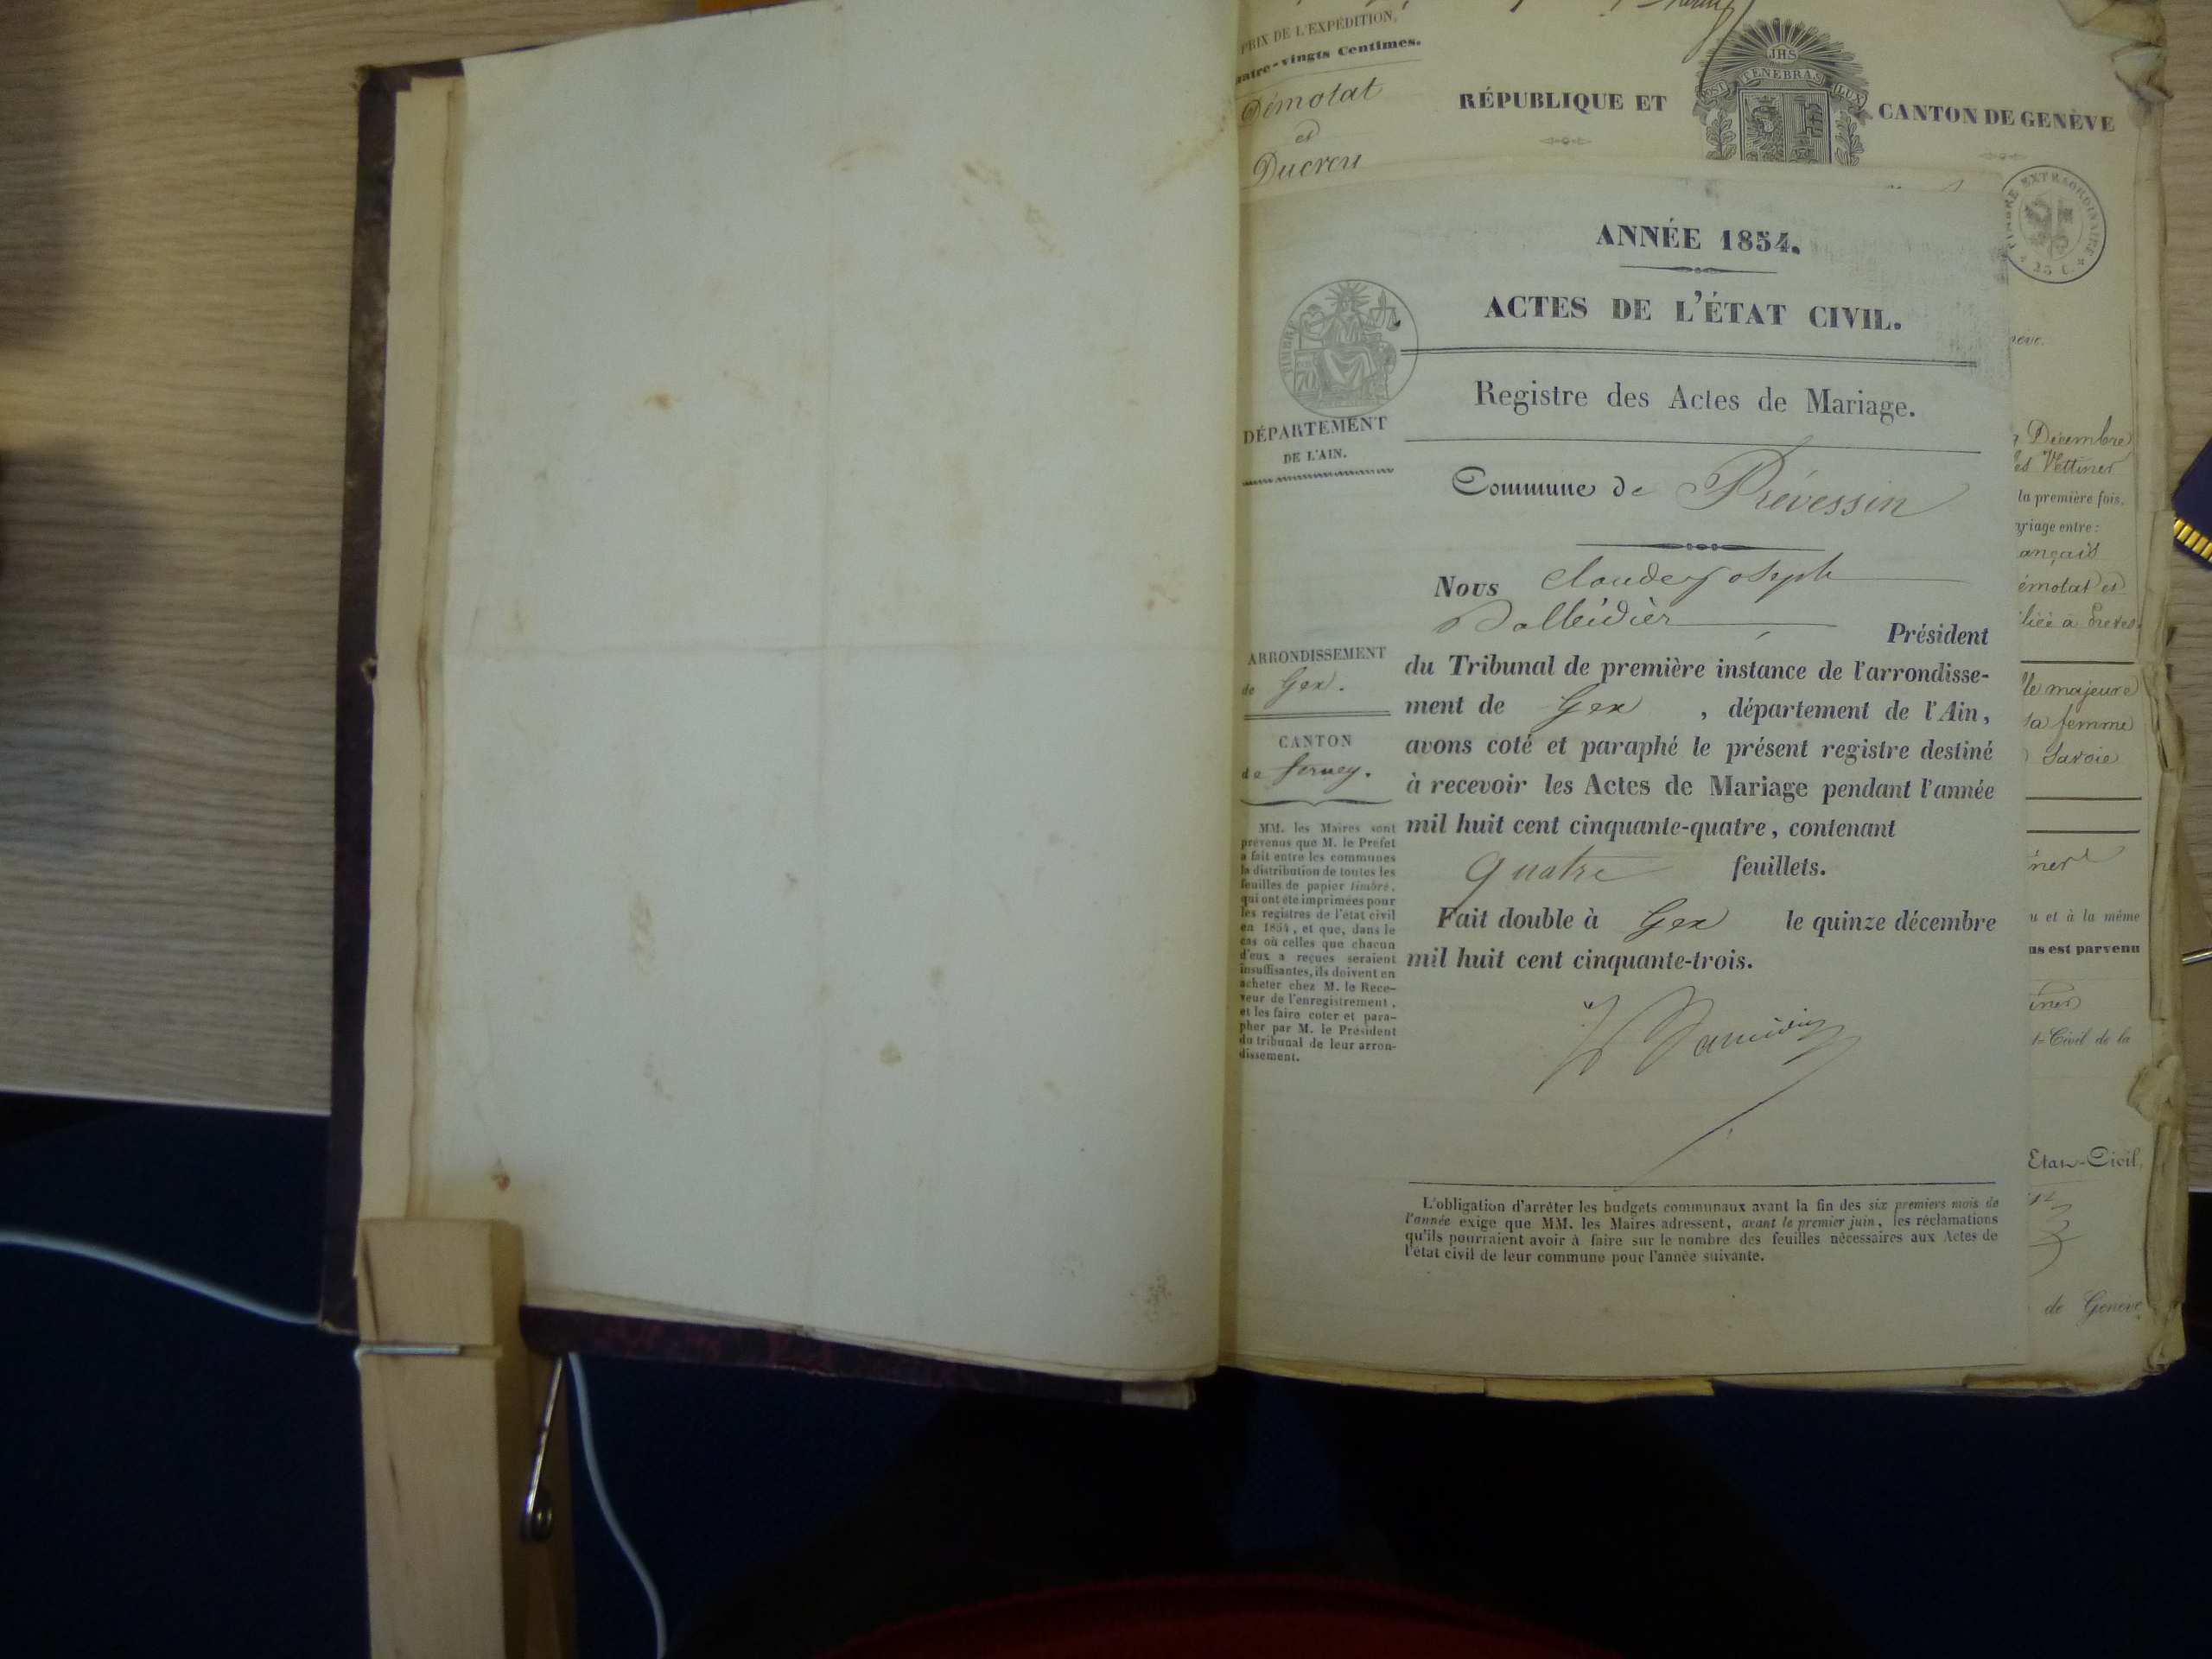 PRIX DE L'EXPÉDITION,
quatre-vingts Centimes.
Démolat
et
Ducreu
RÉPUBLIQUE ET
JHS
POST TENEBRAS LUX
CANTON DE GENÈVE
TIMBRE EXTRAORDINAIRE
25 C.
ANNÉE 1854.
ACTES DE L'ÉTAT CIVIL.
TIMBRE
70
Registre des Actes de Mariage.
DÉPARTEMENT
DE L'AIN.
Commune de Prévessin
Nous Claude Joseph
Président
du Tribunal de première instance de l'arrondisse-
ment de Gex , département de l'Ain,
avons coté et paraphé le présent registre destiné
à recevoir les Actes de Mariage pendant l'année
mil huit cent cinquante-quatre, contenant
quatre feuillets.
Fait double à Gex le quinze décembre
mil huit cent cinquante-trois.
ARRONDISSEMENT
de Gex.
CANTON
de Ferney.
MM. les Maires sont
prévenus que M. le Préfet
a fait entre les communes
la distribution de toutes les
feuilles de papier timbré,
qui ont été imprimées pour
les registres de l'état civil
en 1854, et que, dans le
cas où celles que chacun
d'eux a reçues seraient
insuffisantes, ils doivent en
acheter chez M. le Rece-
veur de l'enregistrement,
et les faire coter et para-
pher par M. le Président
du tribunal de leur arron-
dissement.
L'obligation d'arrêter les budgets communaux avant la fin des six premiers mois de
l'année exige que MM. les Maires adressent, avant le premier juin, les réclamations
qu'ils pourraient avoir à faire sur le nombre des feuilles nécessaires aux Actes de
l'état civil de leur commune pour l'année suivante.
Décembre
Vettiner
la première fois.
riage entre:
ançais
émolat et
liée à
le majeure
sa femme
Savoie
ner
u et à la même
us est parvenu
iner
Civil de la
Etat-Civil,
de Genève